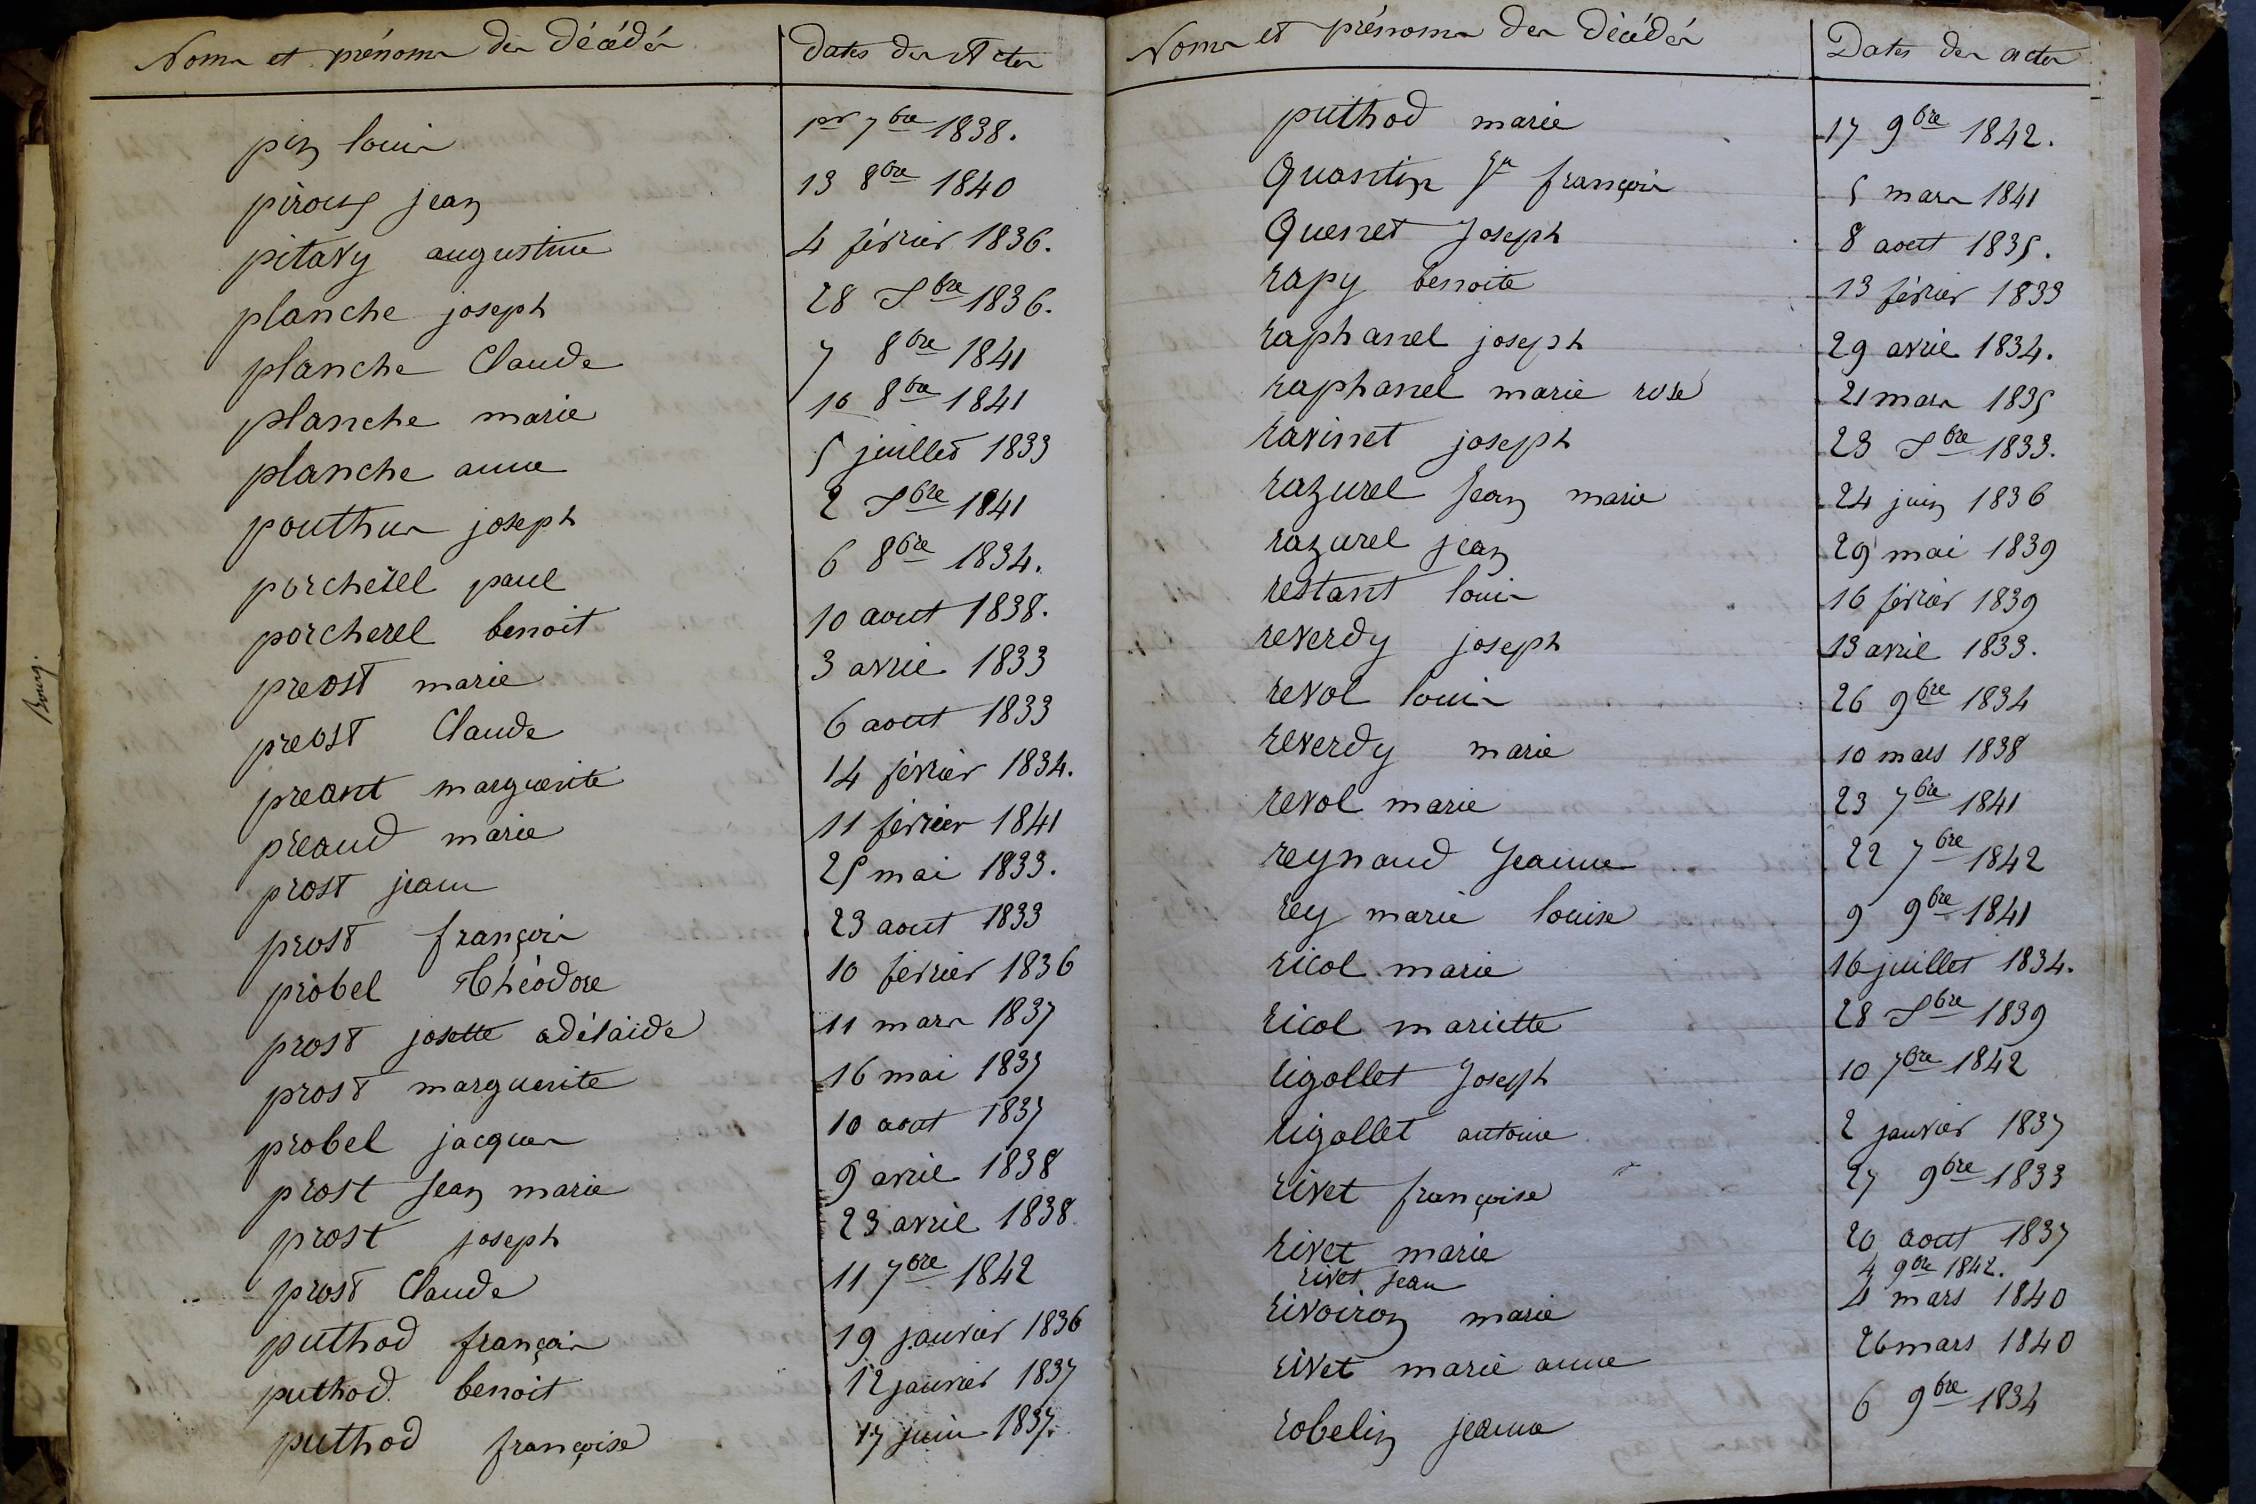 Noms et prénoms des décédés Dates des Actes
pin louis 1er 7bre 1838.
piroux jean 13 8bre 1840
pitavy augustine 4 février 1836.
planche joseph 28 Xbre 1836.
planche Claude 7 8bre 1841
planche marie 10 8bre 1841
planche anne 5 juillet 1833
pouthus joseph 2 Xbre 1841
porcherel paul 6 8bre 1834.
porcherel benoit 10 aout 1838.
preost marie 3 avril 1833
preost Claude 6 aout 1833
preant marguerite 14 février 1834.
preaud marie 11 février 1841
prost jean 25 mai 1833.
prost françois 23 aout 1833
probel Théodore 10 février 1836
prost josette adélaide 11 mars 1837
prost marguerite 16 mai 1837
probel jacques 10 aout 1837
prost Jean marie 9 avril 1838
prost joseph 23 avril 1838
prost Claude 11 7bre 1842
puthod françois 19 janvier 1836
puthod benoit 12 janvier 1837
puthod françoise 17 juin 1837.
Bourg.
Noms et prénoms des décédés Dates des actes
puthod marie 17 9bre 1842.
Quantin Jn françois 5 mars 1841
Quenet Joseph 8 aout 1835.
rapy benoite 13 février 1833
raphanel joseph 29 avril 1834.
raphanel marie rose 21 mars 1835
ravinet joseph 23 Xbre 1833.
razurel Jean marie 24 juin 1836
razurel jean 29 mai 1839
restant louis 16 février 1839
reverdy joseph 13 avril 1833.
revol louis 26 9bre 1834
reverdy marie 10 mars 1838
revol marie 23 7bre 1841
reynaud Jeanne 22 7bre 1842
rey marie louise 9 9bre 1841
ricol marie 16 juillet 1834.
ricol mariette 28 Xbre 1839
rigollet Joseph 10 7bre 1842
rigollet antoine 2 janvier 1837
rivet françoise 27 9bre 1833
rivet marie 20 aout 1837
rivet jean 4 9bre 1842.
rivoiron marie 4 mars 1840
rivet marie anne 26 mars 1840
robelin jeanne 6 9bre 1834